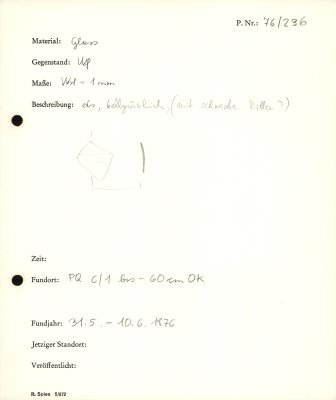 P. Nr.: 76/236
Material: Glas
Gegenstand: Ug
Maße: Wst - 1 mm
Beschreibung: ds, hellgrünlich, (mit schwache Rillen?)
Zeit:
Fundort: PQ C/1 bis - 60 cm OK
Fundjahr: 31.5. - 10.6. 1976
Jetziger Standort:
Veröffentlicht:
R. Spies 5/873